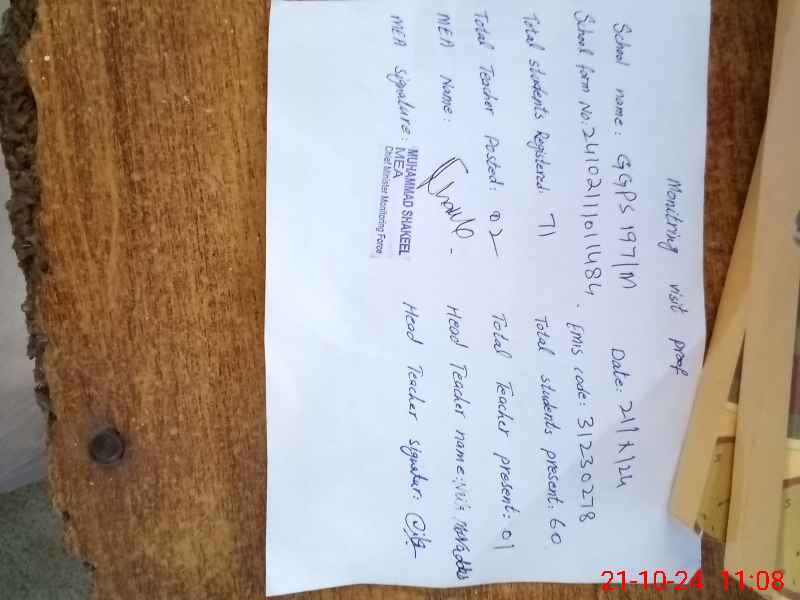 Monitoring visit proof
School name: GGPS 197/M Date: 21/X/24
School form No: 24102111011484. EMIS code: 31230278
Total students Registered: 71 Total students present: 60
Total Teacher Posted: 02 Total Teacher present: 01
MEA Name: Head Teacher name:
MEA signature: Head Teacher signatur:
MUHAMMAD SHAKEEL
MEA
Chief Minister Monitoring Force
21-10-24 11:08